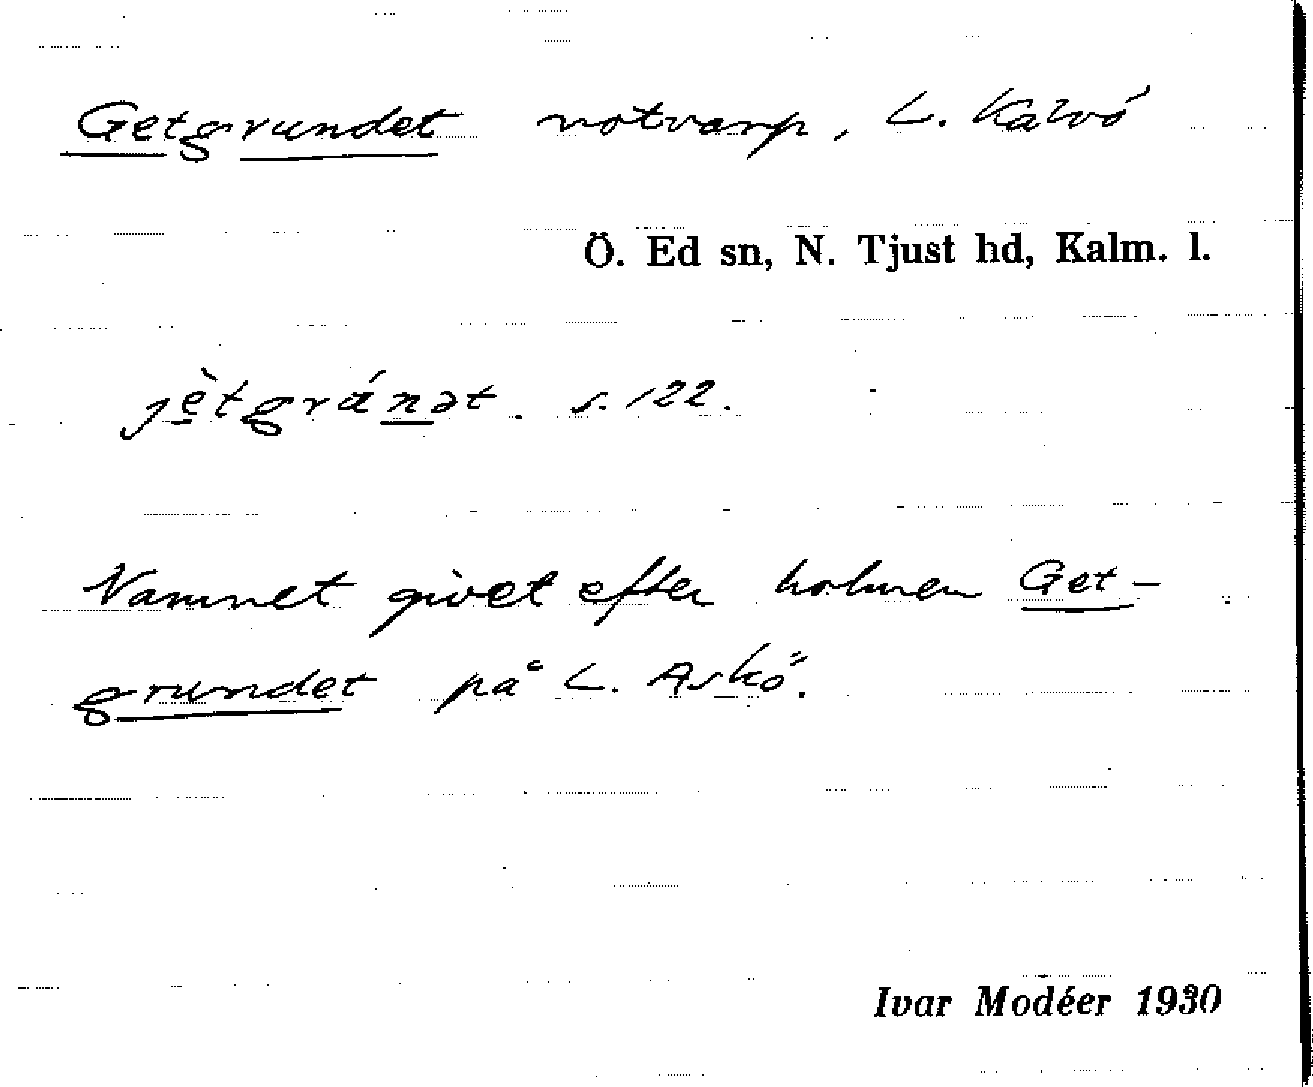 Getgrundet notvarp, L. Kalvö
Ö. Ed sn, N. Tjust hd, Kalm. l.
jètgránət. s. 122.
Namnet givet efter holmen Get-
grundet på L. Askö.
Ivar Modéer 1930